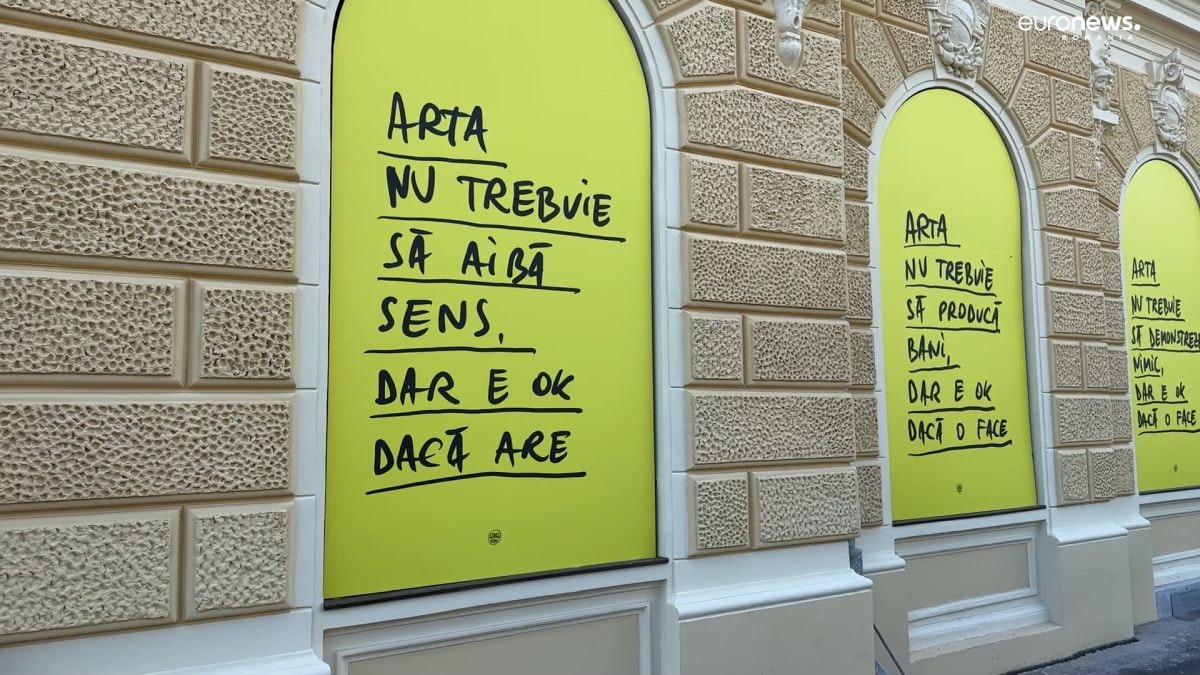 euronews.
ROMANIA
ARTA
NU TREBUIE
SĂ AIBĂ
SENS,
DAR E OK
DACĂ ARE
ARTA
NU TREBUIE
SĂ PRODUCĂ
BANI,
DAR E OK
DACĂ O FACE
ARTA
NU TREBUIE
SĂ DEMONSTREZE
NIMIC,
DAR E OK
DACĂ O FACE